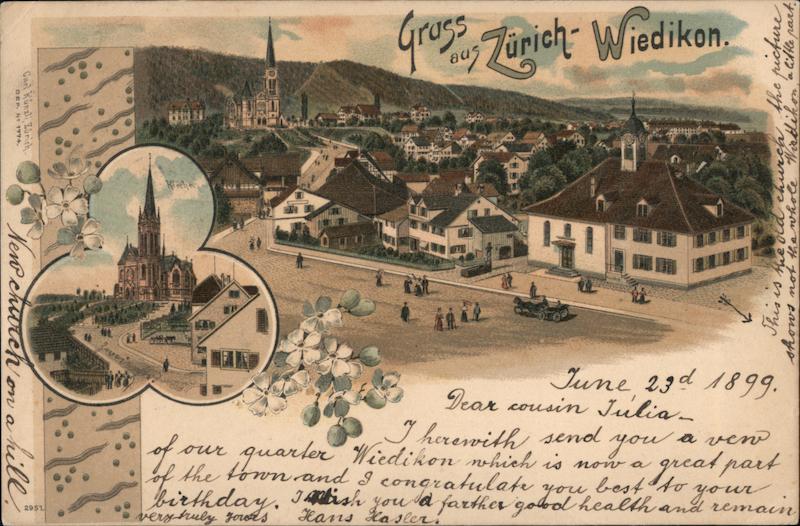 Gruss aus Zürich-Wiedikon.
Carl Künzli, Zürich.
DEP. No 1774.
Kirche
June 23d 1899.
Dear cousin Júlia_
I herewith send you a vew
of our quarter Wiedikon which is now a great part
of the town and I congratulate you best to your
birthday. I wish you a farther good health and remain
very truly yours Hans Hasler.
2951.
New church on a hill.
This is the old church, the picture
shows not the whole Wiedikon, a little part.